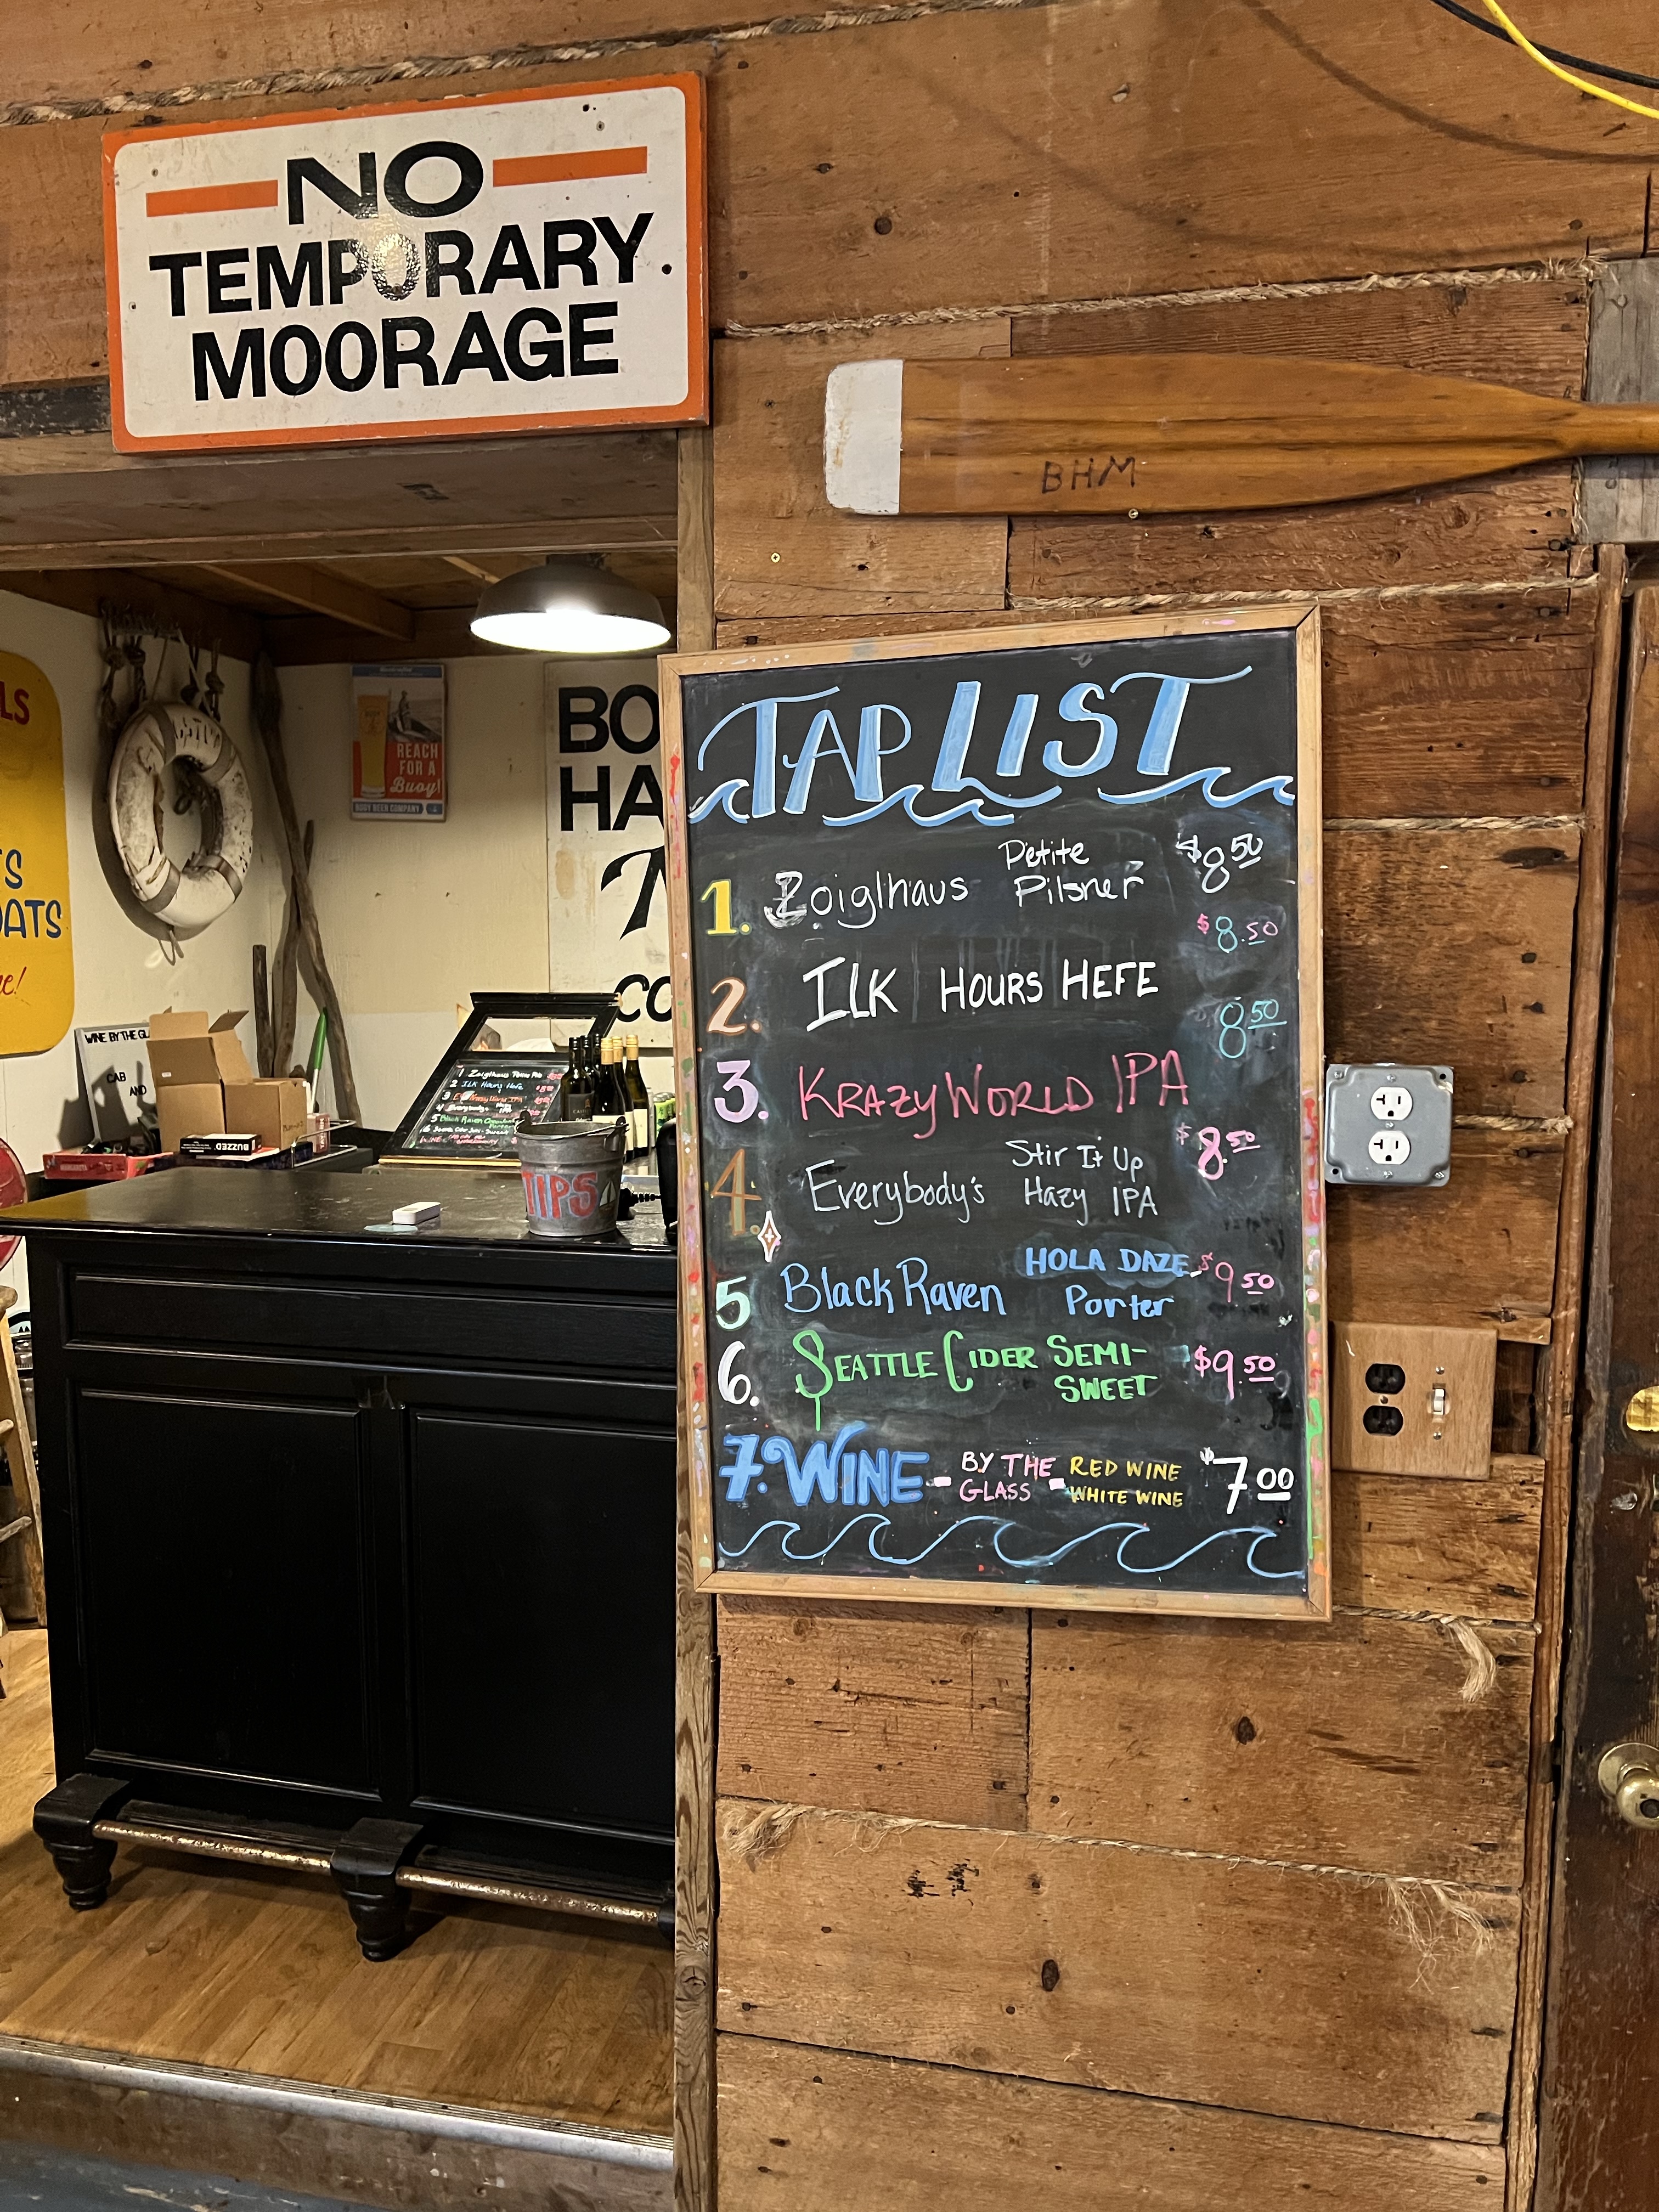 NO
TEMPORARY
MOORAGE
BHM
TAP LIST
1. Zoiglhaus Petite Pilsner $8 50
2. ILK HOURS HEFE $8.50
3. KRAZY WORLD IPA 8 50
4. Everybody's Stir It Up Hazy IPA $8.50
5 Black Raven HOLA DAZE Porter $9.50
6. SEATTLE CIDER SEMI-SWEET $9.50
7. WINE - BY THE GLASS - RED WINE WHITE WINE $7 00
REACH
FOR A
Buoy!
BUOY BEER COMPANY
BO
HA
CO
LS
TS
OATS
e!
WINE BY THE GL
CAB
AND
BUZZED
TIPS
1 Zoiglhaus
2 ILK Hours Hefe
3 Krazy World IPA
4 Everybody's
5 Black Raven